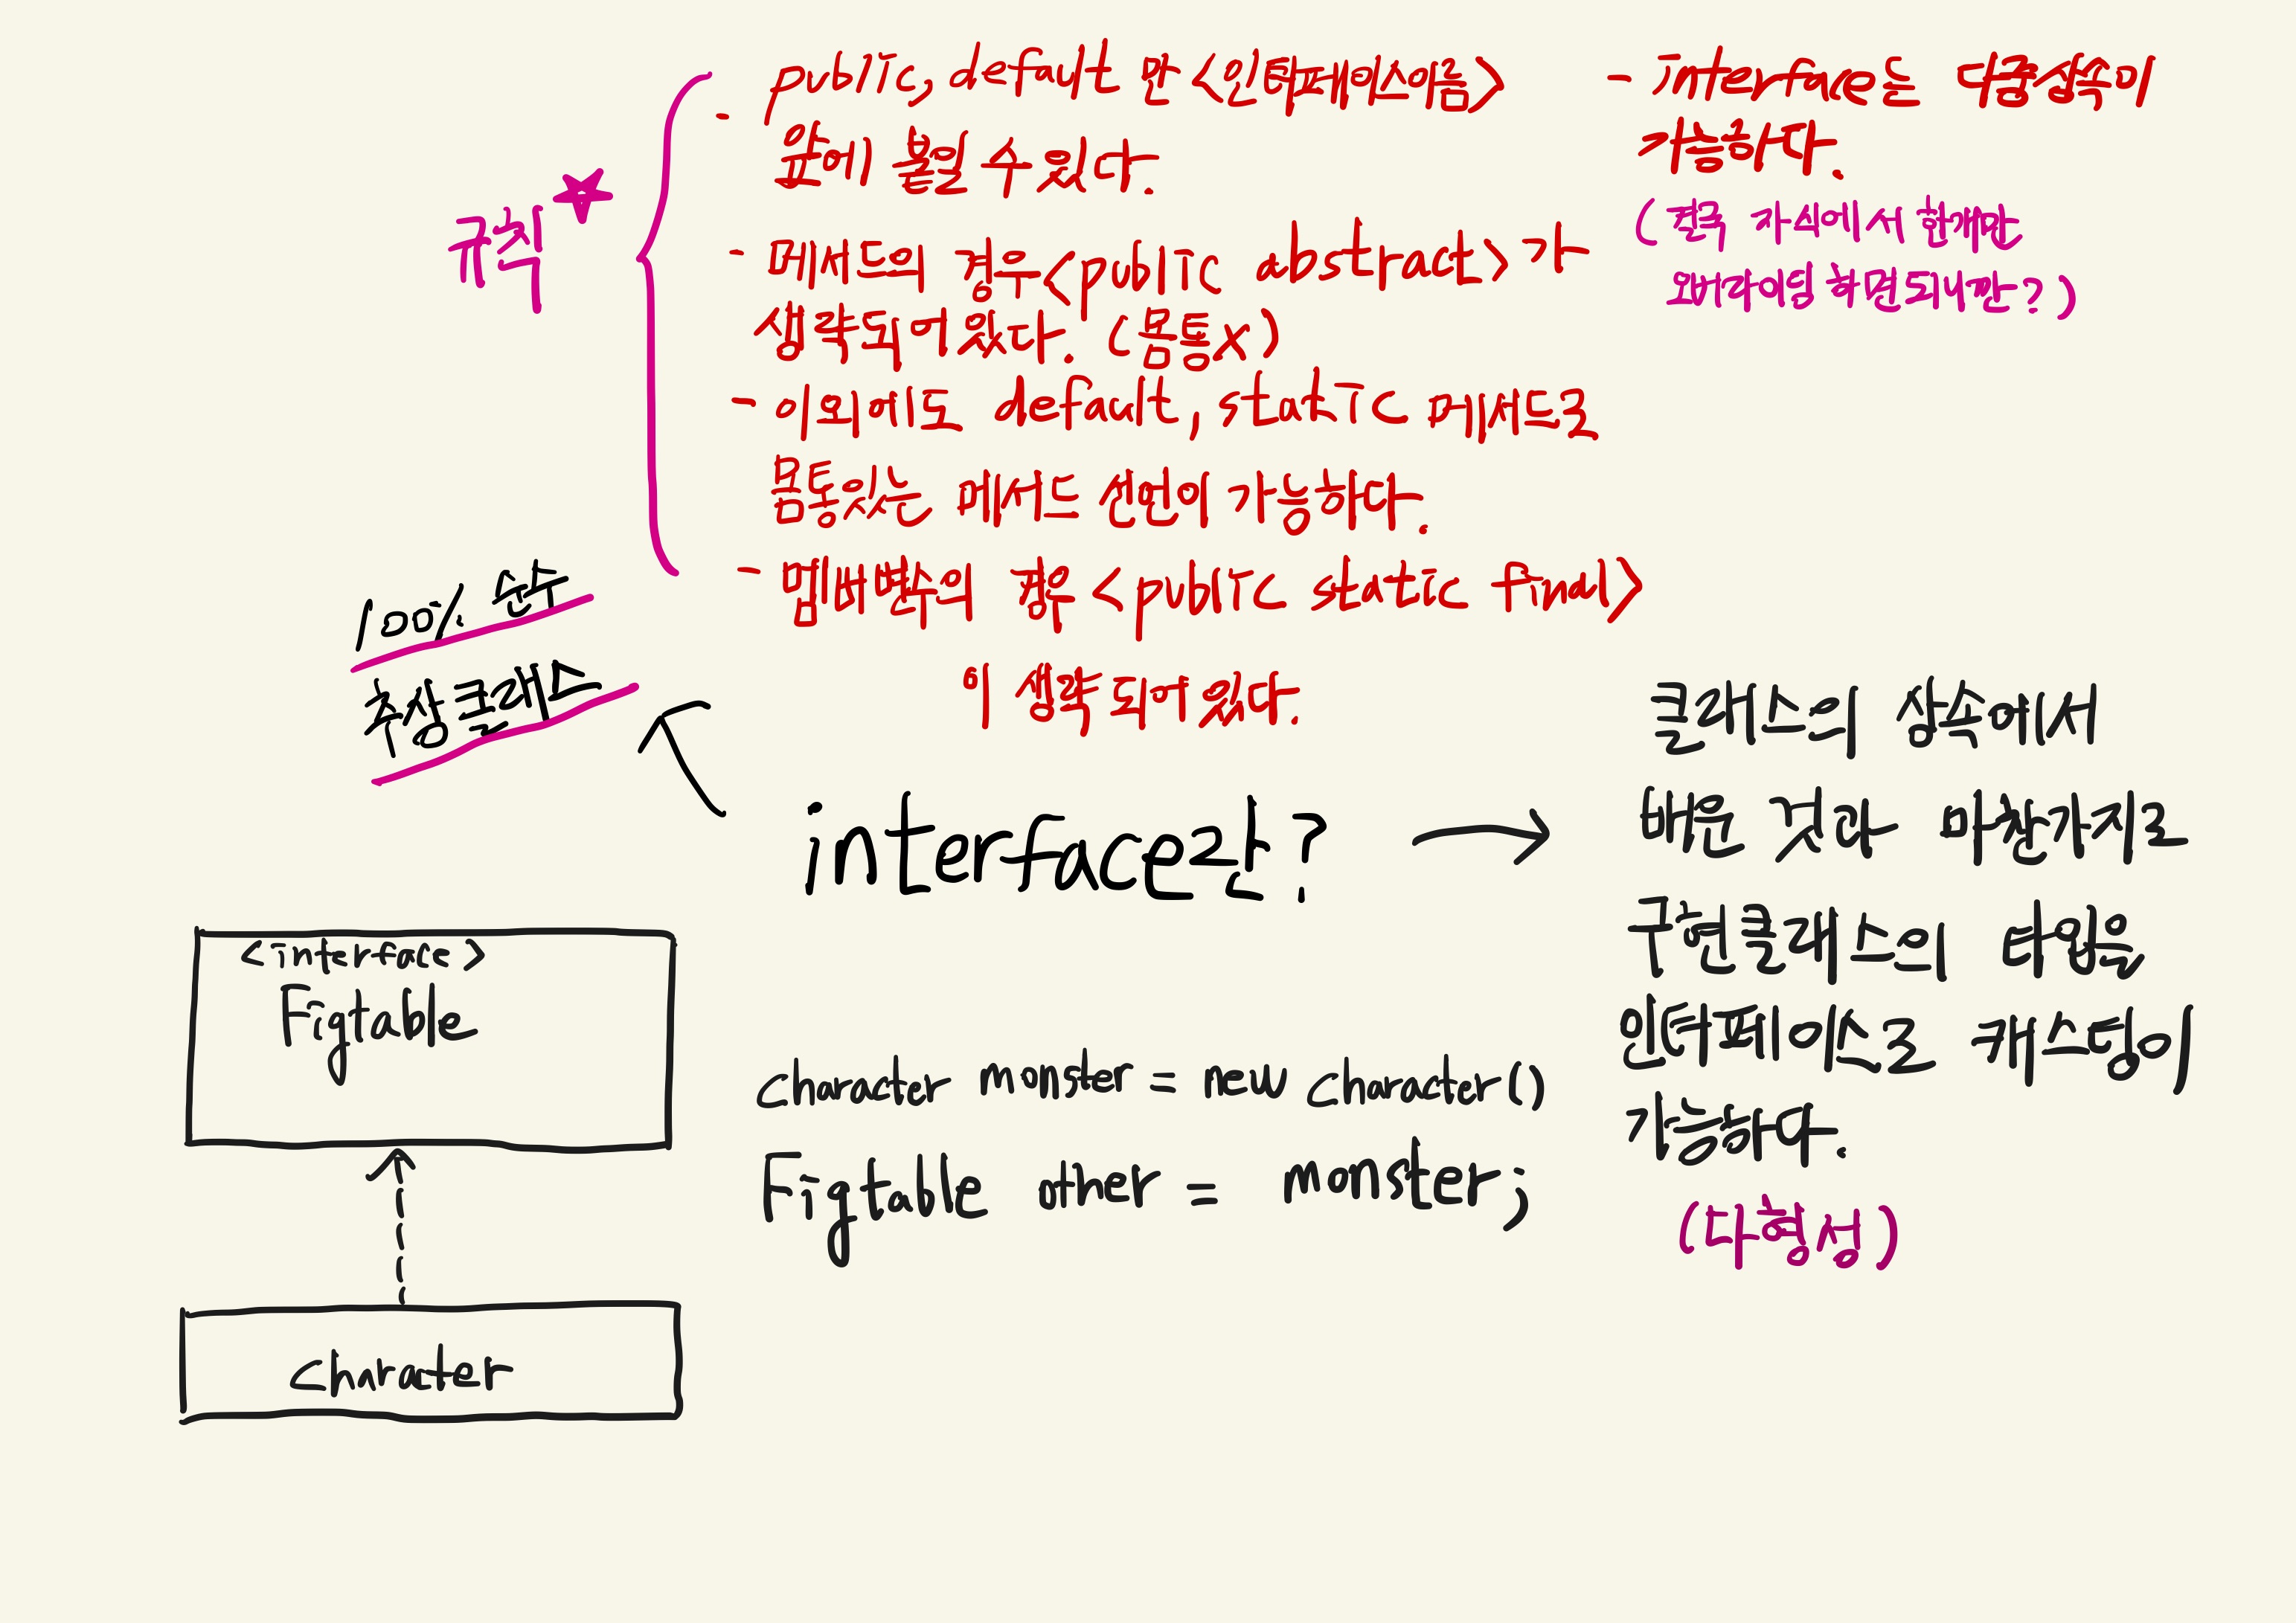 - public, default 만 <인터페이스이름>
앞에 붙일 수 있다.
- 메서드의 경우 <public abstract> 가
생략되어 있다. (몸통x)
- 이외에도 default, static 메서드로
몸통있는 메서드 선언이 가능하다.
- 멤버변수의 경우 <public static final>
이 생략 되어 있다.
- interface는 다중상속이
가능하다.
(결국 자식에서 한개만
오버라이딩 하면되니깐?)
규칙
100% 순수
추상클래스
interface란?
클래스의 상속에서
배운 것과 마찬가지로
구현클래스의 타입을
인터페이스로 캐스팅이
가능하다.
(다형성)
<interface>
Figtable
Character monster = new Character()
Figtable other = monster;
Charater